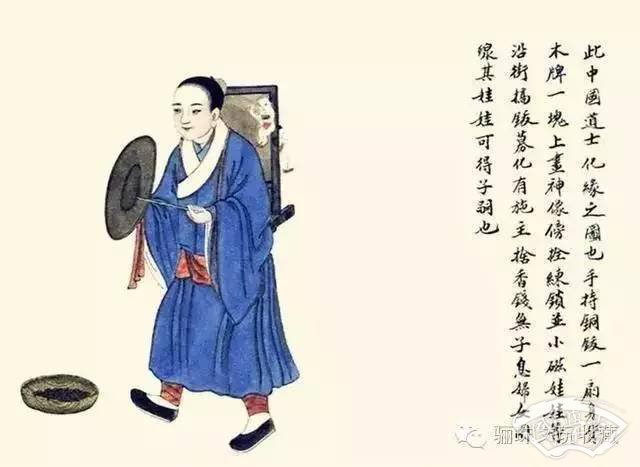 此中國道士化緣之圖也手持銅鈸一扇身背
木牌一塊上畫神像傍拴練鎖並小磁娃娃等
沿街搞鈸募化有施主捨香錢無子息婦女
線其娃娃可得子嗣也
骊眯文玩收藏